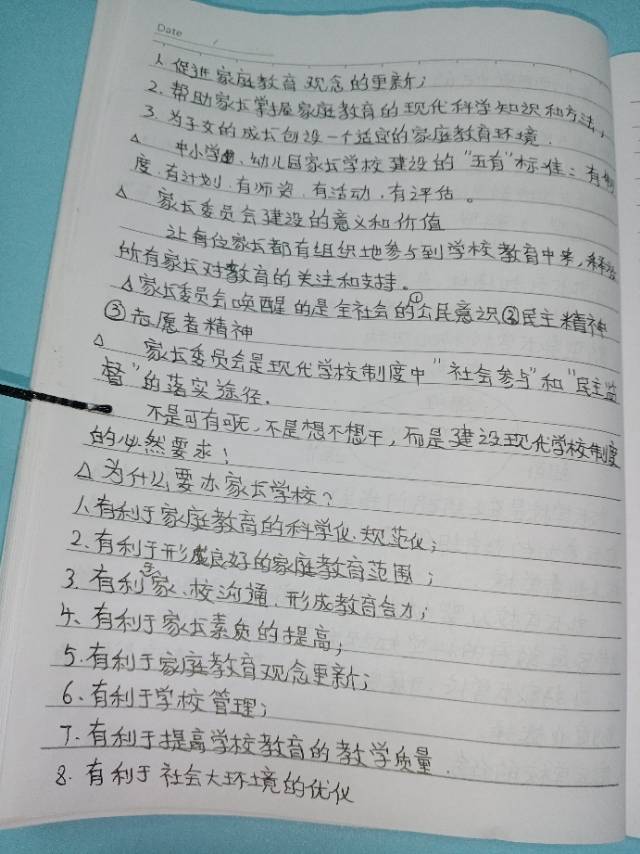 Date
1. 促进家庭教育观念的更新;
2. 帮助家长掌握家庭教育的现代科学知识和方法,
3. 为子女的成长创设一个适宜的家庭教育环境.
△ 中小学、幼儿园家长学校建设的"五有"标准:有制
度.有计划.有师资.有活动.有评估。
△ 家长委员会建设的意义和价值
让每位家长都有组织地参与到学校教育中来,
所有家长对教育的关注和支持。
△家长委员会唤醒的是全社会的①公民意识②民主精神
③志愿者精神
△ 家长委员会是现代学校制度中"社会参与"和"民主监
督"的落实途径.
不是可有可无、不是想不想干,而是建设现代学校制度
的必然要求!
△ 为什么要办家长学校?
1.有利于家庭教育的科学化.规范化;
2.有利于形成良好的家庭教育范围;
3.有利于家、校沟通.形成教育合力;
4、有利于家长素质的提高;
5.有利于家庭教育观念更新;
6.有利于学校管理;
7.有利于提高学校教育的教学质量.
8.有利于社会大环境的优化